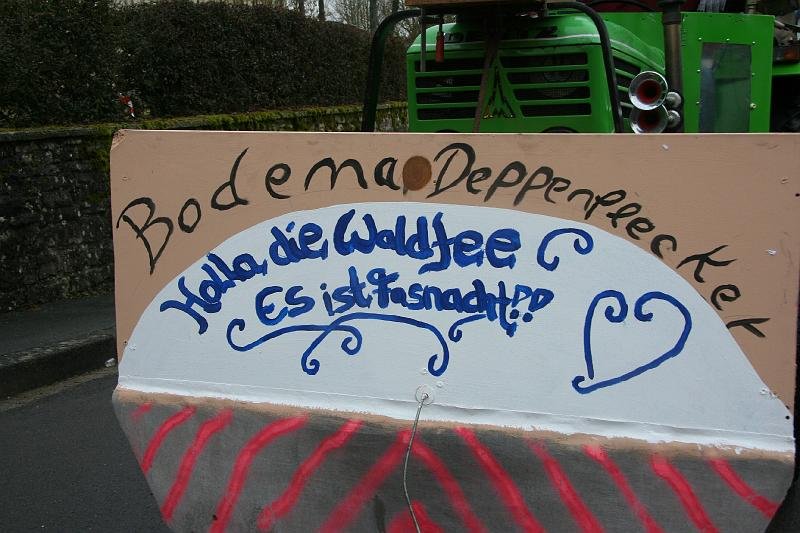 Bodema Deppenflecker
Holla, die Waldfee
Es ist Fasnacht!?